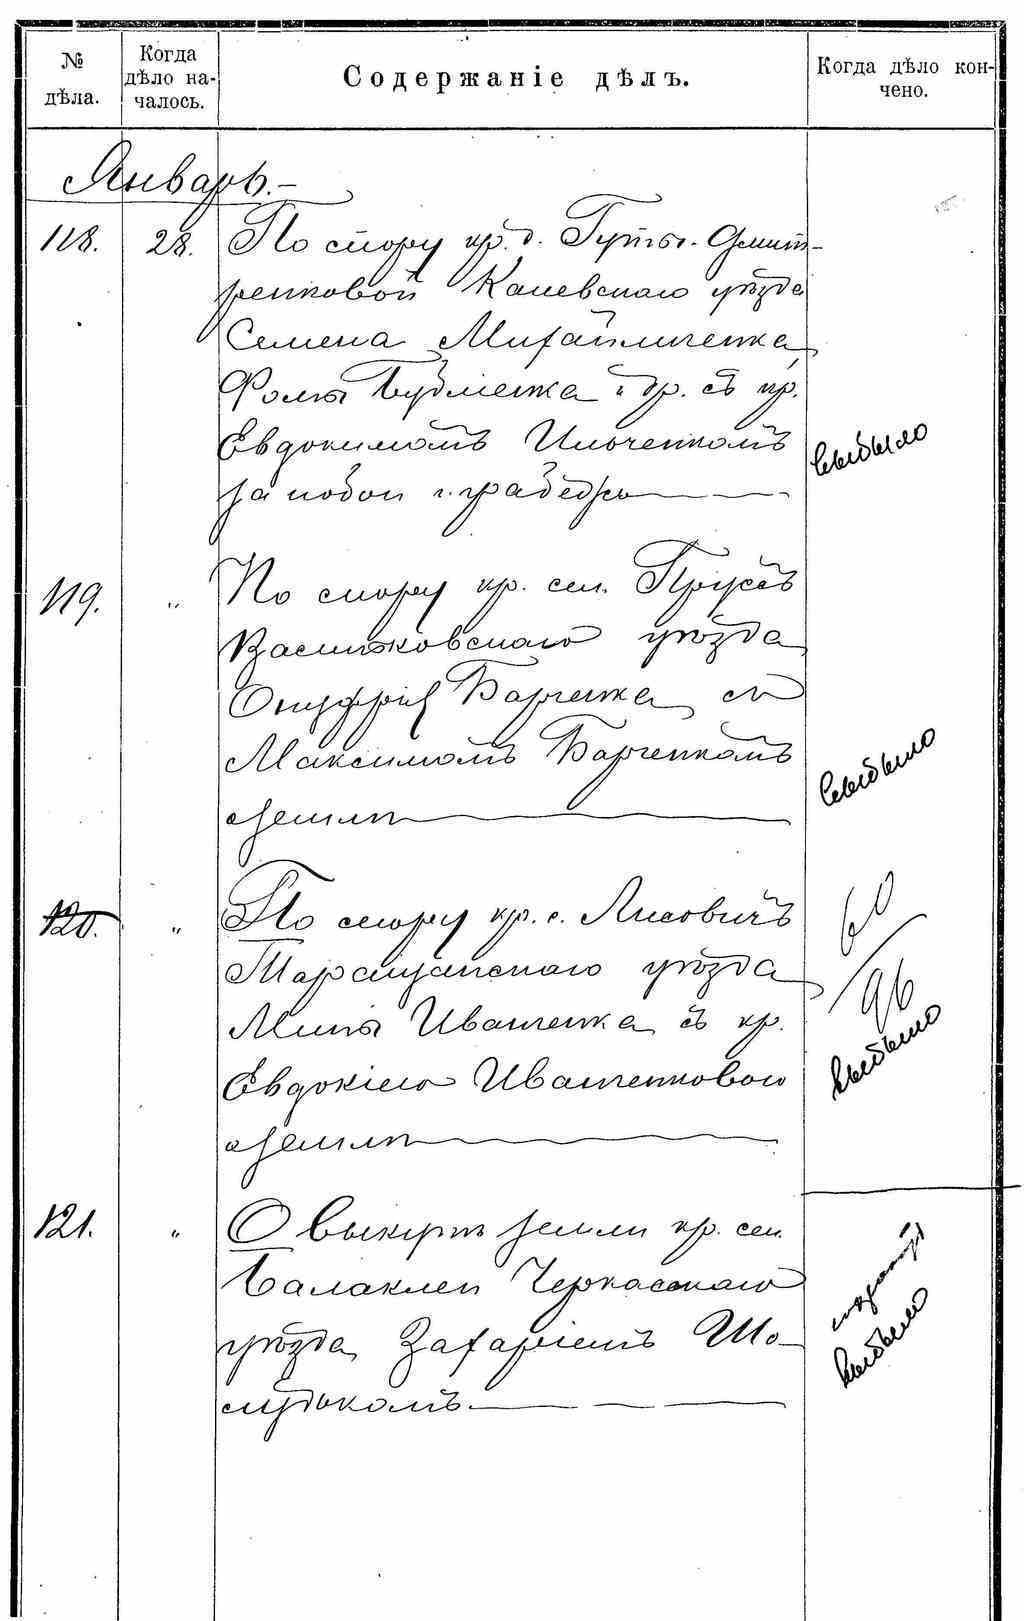 № дѣла.
Когда дѣло на-
чалось.
Содержаніе дѣлъ.
Когда дѣло кон-
чено.
Январь.-
118. 28. По спору кр. д. Гуты-Дмит-
ренковой Каневскаго уѣзда
Семена Михайличенка,
Фомы и др. съ кр.
Евдокимомъ Ильченкомъ
за побои и грабежъ
выбыло
119. " По спору кр. сел. Прусъ
Васильковскаго уѣзда
Онуфрія Барченка съ
Максимомъ Барченкомъ
о земли
выбыло
120. " По спору кр. с. Лисовичъ
Таращанскаго уѣзда
Мины Иващенка съ кр.
Евдокіею Иващенковою
о земли
60/96
выбыло
121. " О выкупѣ земли кр. сел.
Балаклеи Черкасскаго
уѣзда Захаріемъ Шо-
лудькомъ
выбыло